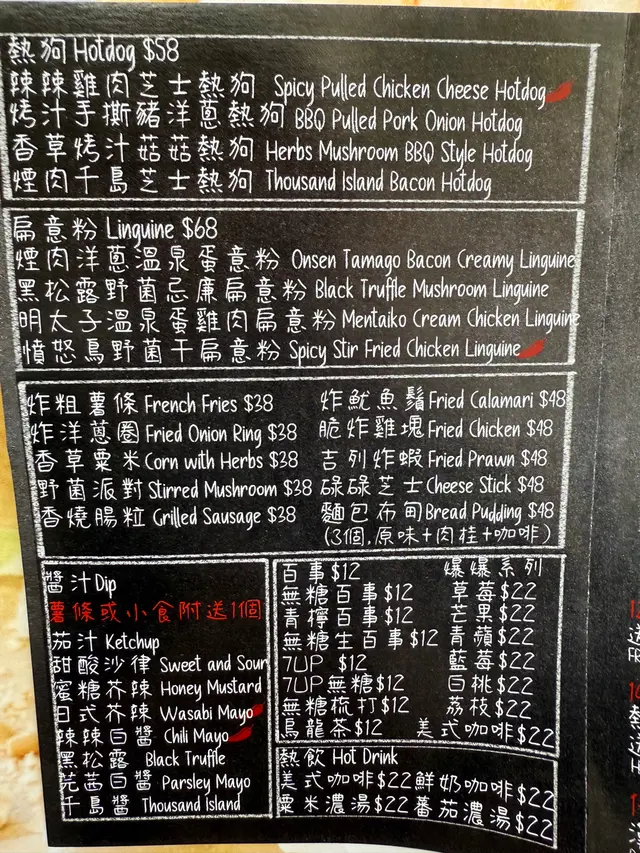 熱狗 Hotdog $58
辣辣雞肉芝士熱狗 Spicy Pulled Chicken Cheese Hotdog
烤汁手撕豬洋蔥熱狗 BBQ Pulled Pork Onion Hotdog
香草烤汁菇菇熱狗 Herbs Mushroom BBQ Style Hotdog
煙肉千島芝士熱狗 Thousand Island Bacon Hotdog
扁意粉 Linguine $68
煙肉洋蔥溫泉蛋意粉 Onsen Tamago Bacon Creamy Linguine
黑松露野菌忌廉扁意粉 Black Truffle Mushroom Linguine
明太子溫泉蛋雞肉扁意粉 Mentaiko Cream Chicken Linguine
憤怒鳥野菌干扁意粉 Spicy Stir Fried Chicken Linguine
炸粗薯條 French Fries $38
炸洋蔥圈 Fried Onion Ring $38
香草粟米 Corn with Herbs $38
野菌派對 Stirred Mushroom $38
香燒腸粒 Grilled Sausage $38
炸魷魚鬚 Fried Calamari $48
脆炸雞塊 Fried Chicken $48
吉列炸蝦 Fried Prawn $48
碌碌芝士 Cheese Stick $48
麵包布甸 Bread Pudding $48
(3個,原味+肉桂+咖啡)
醬汁 Dip
薯條或小食附送1個
茄汁 Ketchup
甜酸沙律 Sweet and Sour
蜜糖芥辣 Honey Mustard
日式芥辣 Wasabi Mayo
辣辣白醬 Chili Mayo
黑松露 Black Truffle
芫茜白醬 Parsley Mayo
千島醬 Thousand Island
百事$12
無糖百事$12
青檸百事$12
無糖生百事$12
7UP $12
7UP無糖$12
無糖梳打$12
烏龍茶$12
爆爆系列
草莓$22
芒果$22
青蘋$22
藍莓$22
白桃$22
荔枝$22
美式咖啡$22
熱飲 Hot Drink
美式咖啡$22 鮮奶咖啡$22
粟米濃湯$22 蕃茄濃湯$22